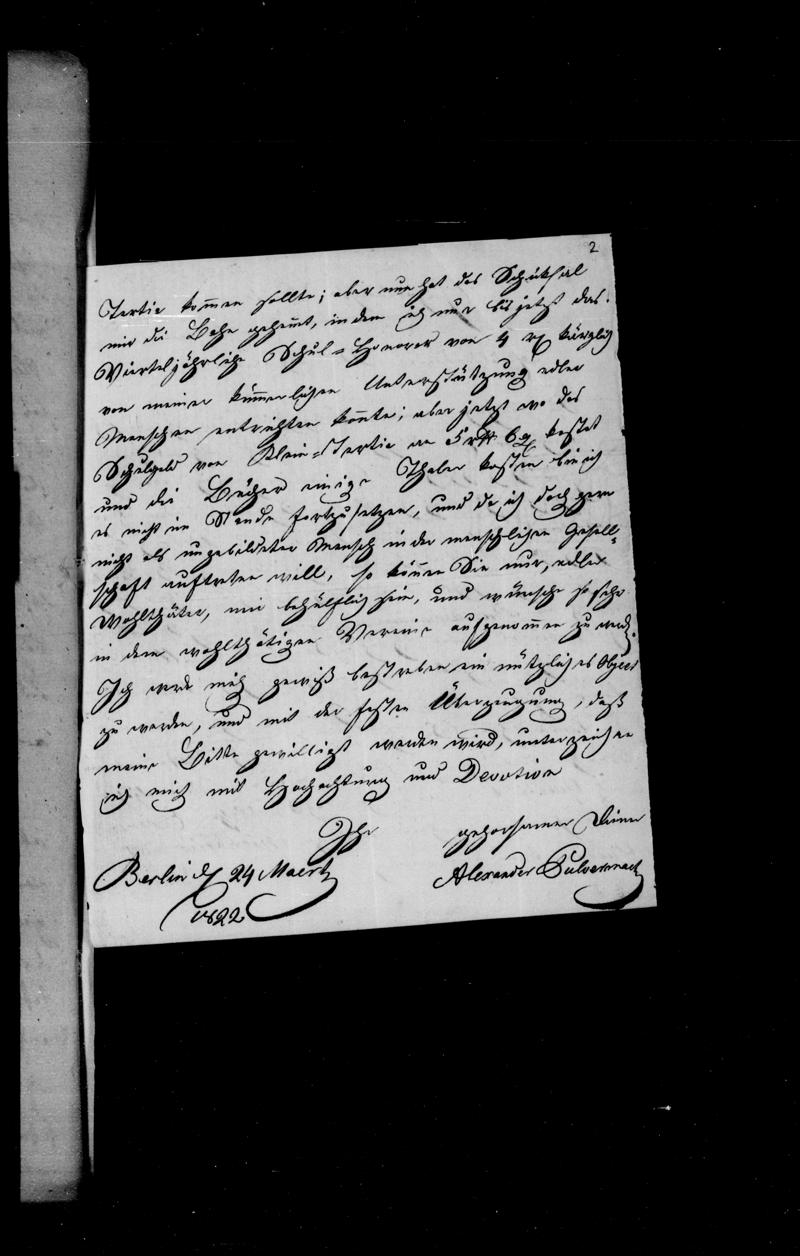 2
Tertia kom̄en sollte; aber nun hat das Schiksal
mir die Bahn gehem̄t, indem ich nur bis jetzt das
Vierteljährliche Schul=Honorar von 4 rʈ kärglich
von meiner küm̄erlichen Unterstützung edler
Menschen entrichten konnte; aber jetzt wo das
Schulgeld von Klein=Tertia an 5 rtʈ 6 g kostet
und die Bücher einige Thaler kosten bin ich
es nicht im Stande fortzusetzen, und da ich doch gern
nicht als ungebildeter Mensch in der menschlichen Gesell=
schaft auftreten will, so kön̄en Sie nur, edler
Wohlthäter, mir behülflich sein, und wünsche so sehr
in dem wohlthätigen Vereine aufgenom̄en zu werd.
Ich werde mich gewiß bestreben ein nützliches Object
zu werden, und mit der festen Überzeugung, daß
meine Bitte gewilligt werden wird, unterzeichne
ich mich mit Hochachtung und Devotion
Ihr gehorsamer Diener
Berlin d 24 Maertz Alexander Pulvermach
1822